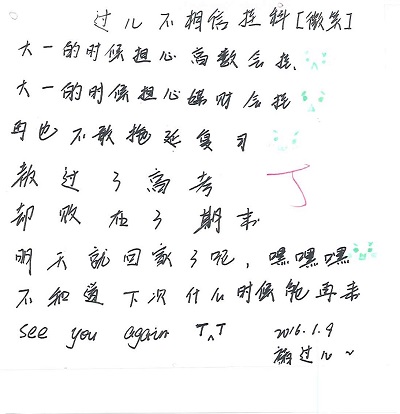 过儿不相信挂科[微笑]
大一的时候担心高数会挂
大一的时候担心会挂
再也不敢拖延复习
过了高考
却败在了期末
明天就回家了呢，嘿嘿嘿
不知道下次什么时候能再来
see you again T^T 2016.1.9
过儿~